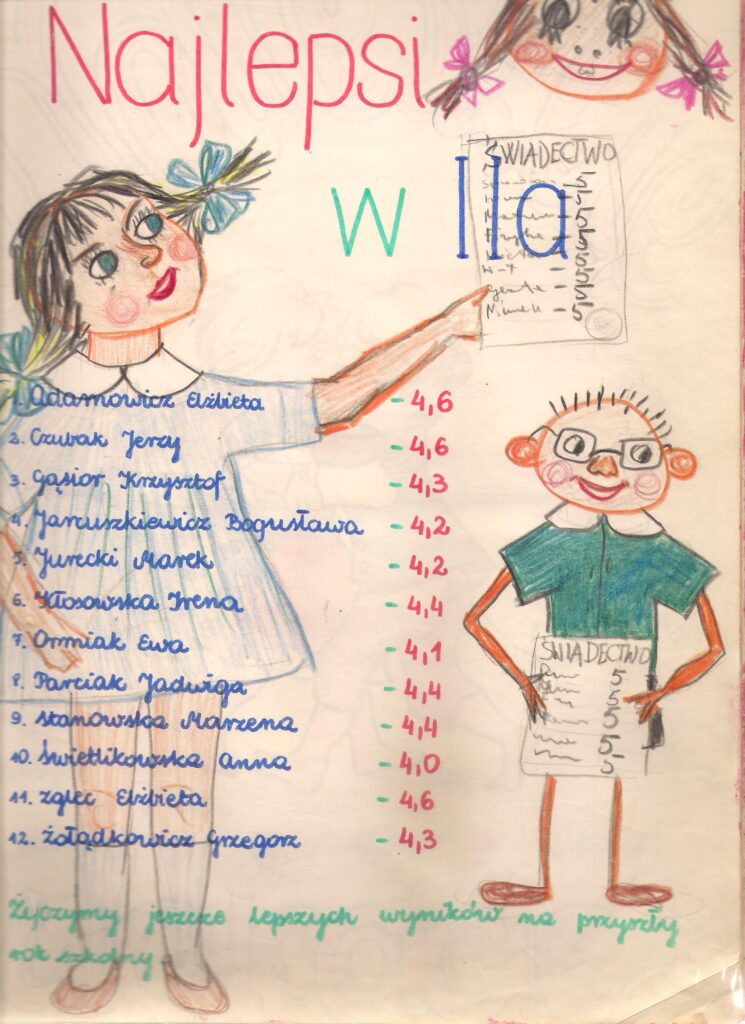 Najlepsi
w IIa
ŚWIADECTWO
5
5
5
5
5
5
5
5
1. Adamowicz Elżbieta - 4,6
2. Czubak Jerzy - 4,6
3. Gąsior Krzysztof - 4,3
4. Januszkiewicz Bogusława - 4,2
5. Jurecki Marek - 4,2
6. Kłosowska Irena - 4,4
7. Ormiak Ewa - 4,1
8. Parciak Jadwiga - 4,4
9. Stanowska Marzena - 4,4
10. Świetlikowska Anna - 4,0
11. Zglec Elżbieta - 4,6
12. Żołądkowicz Grzegorz - 4,3
ŚWIADECTWO
5
5
5
5
5
5
Życzymy jeszcze lepszych wyników na przyszły
rok szkolny.